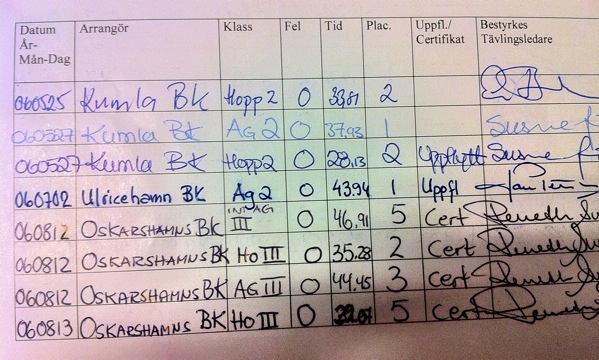 Datum År-Mån-Dag Arrangör Klass Fel Tid Plac. Uppfl./Certifikat Bestyrkes Tävlingsledare
060525 Kumla BK Hopp 2 0 33,81 2
060527 Kumla BK Ag 2 0 37,93 1 Susne
060527 Kumla BK Hopp 2 0 28,13 2 Uppflytt Susne
060702 Ulricehamn BK Ag 2 0 43.94 1 Uppfl
060812 OSKARSHAMNS BK III 0 46,91 5 Cert
060812 OSKARSHAMNS BK Ho III 0 35.28 2 Cert
060812 OSKARSHAMNS BK AG III 0 44,45 3 Cert
060813 OSKARSHAMNS BK Ho III 0 5 Cert